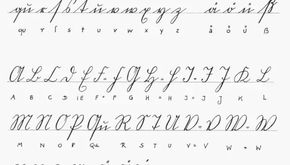 qu r s ſ t u v w x y z ä ö ü ß
qu r s ſ t u v w x y z ä ö ü ß
A B C D E F G H I J K L
A B C D E F G H I J K L
M N O P Qu R S T U V W
M N O P Qu R S T U V W